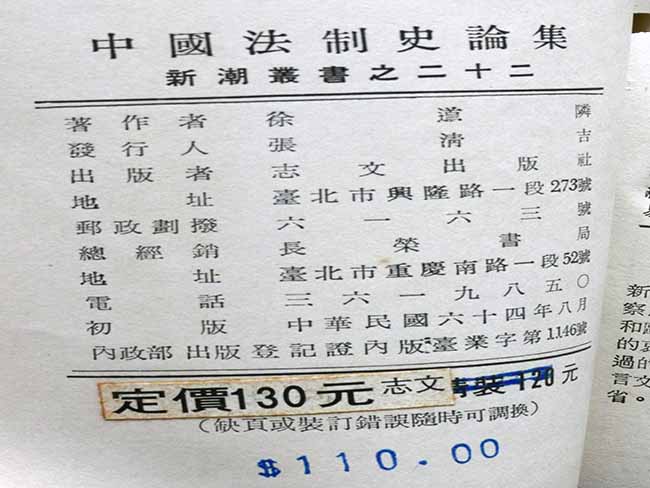 中國法制史論集
新潮叢書之二十二
著作者 徐道隣
發行人 張清吉
出版者 志文出版社
地址 臺北市興隆路一段273號
郵政劃撥 六一六三號
總經銷 長榮書局
地址 臺北市重慶南路一段52號
電話 三六一九八五〇
初版 中華民國六十四年八月
內政部出版登記證內版臺業字第1146號
定價130元 志文 精裝120元
(缺頁或裝訂錯誤隨時可調換)
$110.00
新
察
和
的
過的
言文
省。